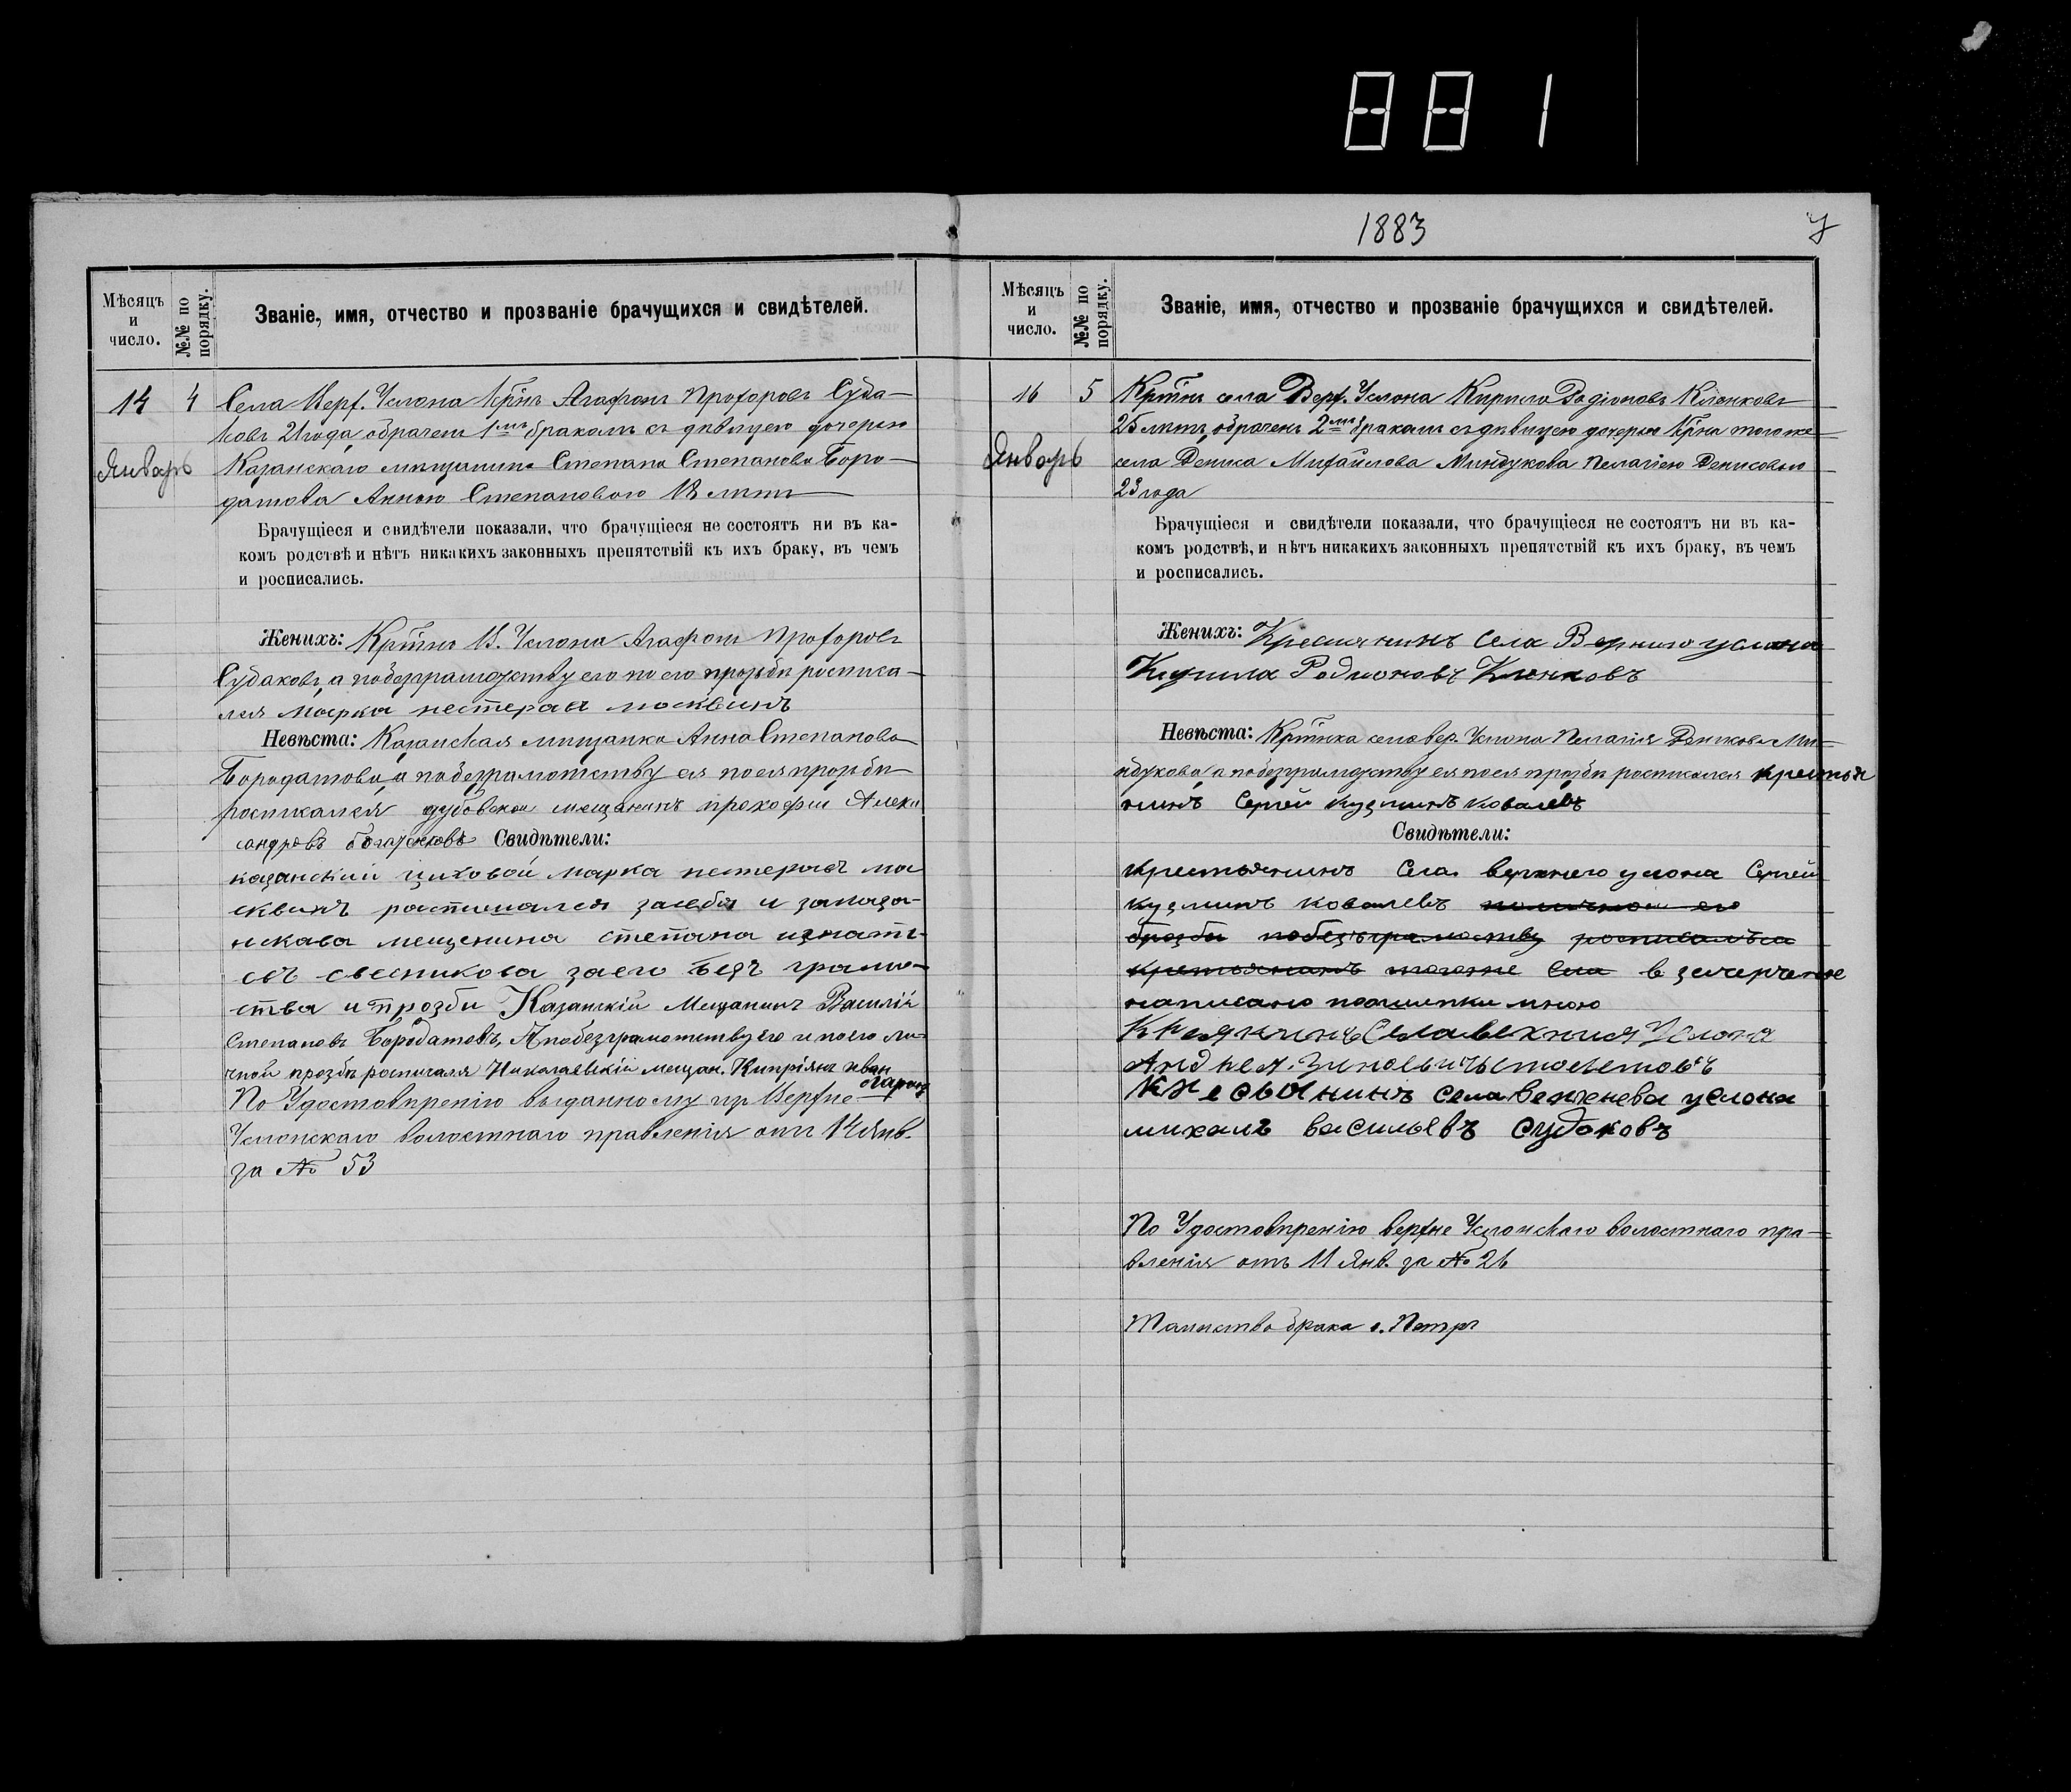 881
1883
Мѣсяцъ
и
число.
№№ по
порядку.
Званіе, имя, отчество и прозваніе брачущихся и свидѣтелей.
14 4 Села Верх. Услона Крнъ Агафонъ Прохоровъ Суда-
ковъ 21 года, обрачен 1мъ бракомъ съ дѣвицею дочерью
Январь Казанскаго мѣщанина Степана Степанова Боро-
датова Анною Степановою 18 лѣтъ
Брачущіеся и свидѣтели показали, что брачущіеся не состоятъ ни въ ка-
комъ родствѣ и нѣтъ никакихъ законныхъ препятствій къ ихъ браку, въ чемъ
и росписались.
Женихъ: Крт̃нъ В. Услона Агафонъ Прохоровъ
Судаковъ, а по безграмотству его по его прозьби росписа-
лся марка нестерав москвинъ
Невѣста: Казанская мѣщанка Анна Степанова
Бородатова, а по безграмотству ея по ея прозьби
росписался дубовскои мещанинъ прокофи Алекс
сандровъ Свидѣтели:
казанский цыховой марка нестеравъ мо
сквинъ росписался засебя и заказа-
нскава мещенина степана игнать-
евъ свесникова заего безъ грамо-
ства и прозби Казанскій Мещанинъ Василій
Степановъ Бородатовъ, А по безграмотству Его и по его ли-
чной прозбѣ росписался Николаевскій мещан. Кипріянъ иван
По Удостовѣренію выданному изъ Верхне-
Услонскаго волостнаго правленія отъ 14 Янв.
за № 53
Мѣсяцъ
и
число.
№№ по
порядку.
Званіе, имя, отчество и прозваніе брачущихся и свидѣтелей.
16 5 Крт̃нъ села Верх. Услона Кирило Родіоновъ Клонковъ
25 лѣтъ, обрачен 2мъ бракомъ съ дѣвицею дочерью Крна того же
Январь села Дениса Михайлова Миндукова Пелагіею Денисовою
23 года
Брачущіеся и свидѣтели показали, что брачущіеся не состоятъ ни въ ка-
комъ родствѣ, и нѣтъ никакихъ законныхъ препятствій къ ихъ браку, въ чемъ
и росписались.
Женихъ: Кресиянинъ Села Верхнего услона
Кирила Родионовъ Клонковъ
Невѣста: Крт̃нка села Вер. Услона Пелагія Денисова Мин-
ндукова, а по безграмотству ея по ея прозьби росписался крестья
нинъ Сергей кузминъ ковалевъ
Свидѣтели:
крестьянинъ Села верхнего услона Сергей
кузминъ ковалевъ по личнои его
брозби побезъграмоству росписалъса
крестьянинъ тогоже Села в зачерченое
написано поашипки мною
Кресиянинъ Села верхния Услона
Андрея. Зиновьичь
Кресьянинъ села верхнева услона
михаилъ васильевъ судаковъ
По Удостовѣренію верхне Услонскаго волостнаго пра-
вленія отъ 11 Янв. за № 26
Таинство брака с. Петръ